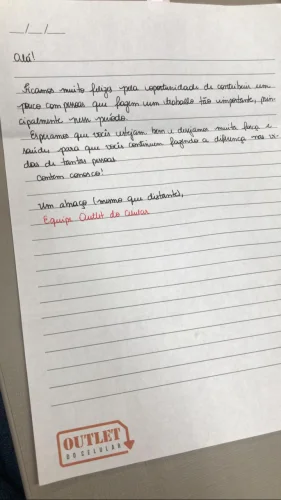 __/__/__
Olá!
Ficamos muito felizes pela oportunidade de contribuir um
pouco com pessoas que fazem um trabalho tão importante, prin-
cipalmente nesse período.
Esperamos que vocês estejam bem e desejamos muita força e
saúde para que vocês continuem fazendo a diferença nas vi-
das de tantas pessoas.
Contem conosco!
Um abraço (mesmo que distante),
Equipe Outlet do Celular
OUTLET
DO CELULAR